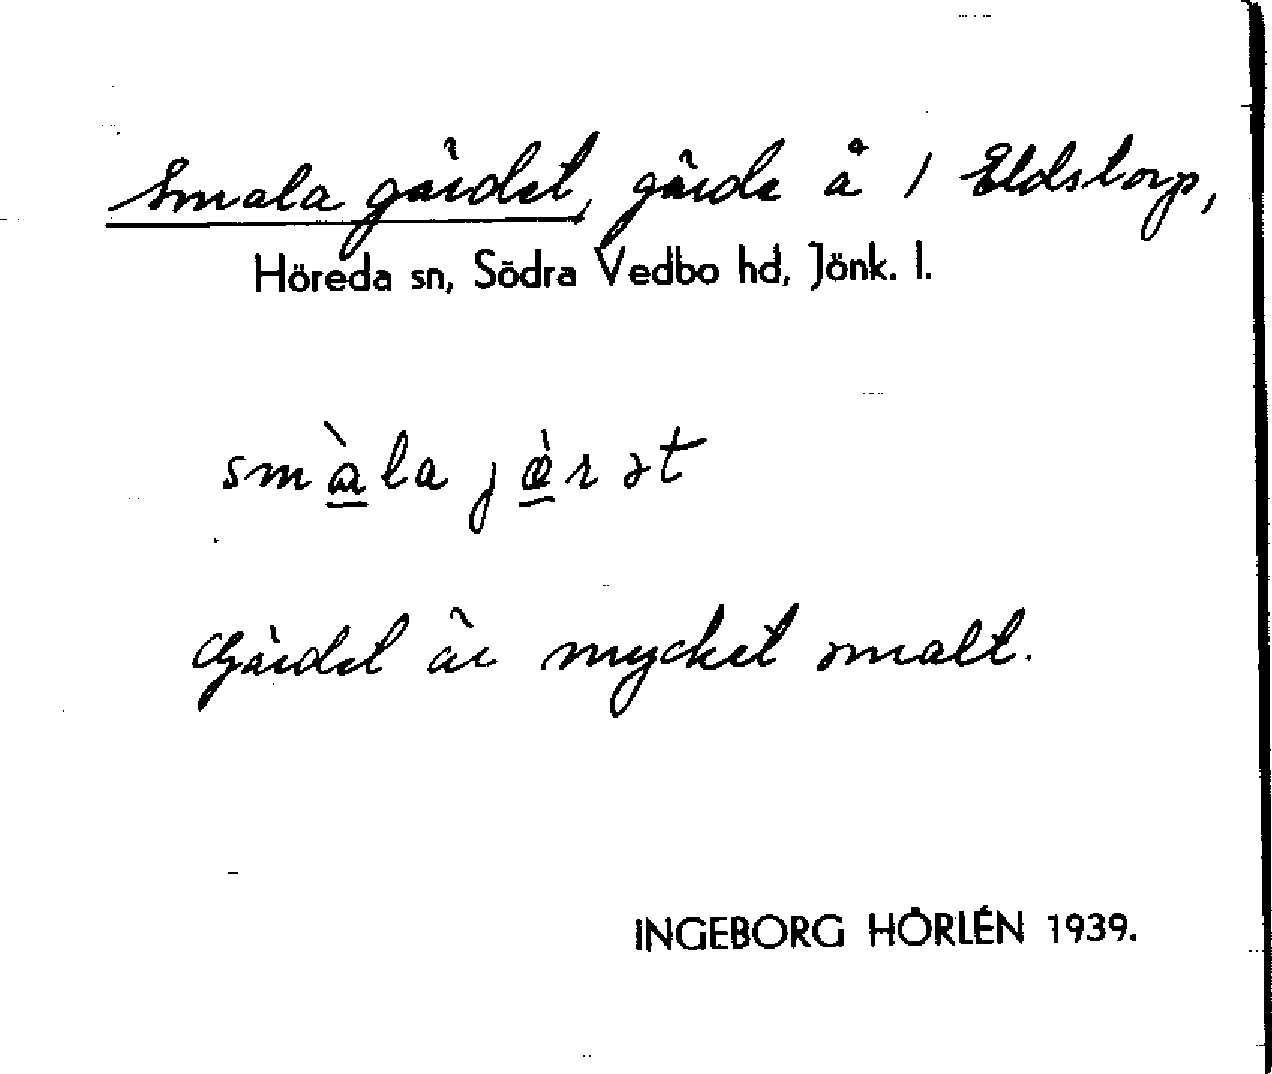 Smala gärdet, gärde å 1 Eldstorp,
Höreda sn, Södra Vedbo hd, Jönk. l.
smàla jæ̀rət
Gärdet är mycket smalt.
INGEBORG HÖRLÉN 1939.